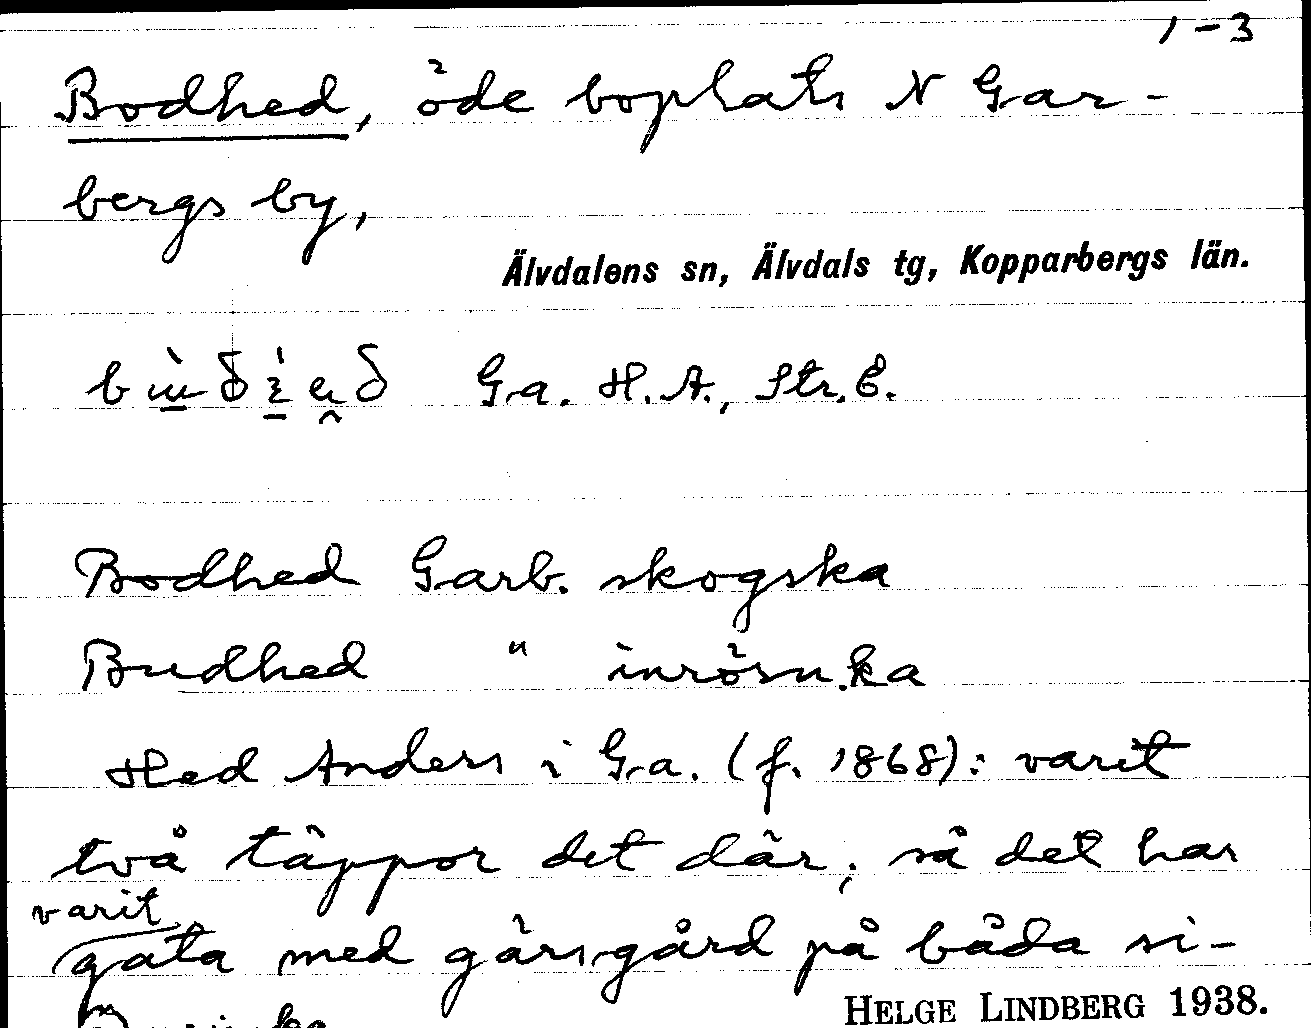 1-3
Bodhed, öde boplats N Gar-
bergs by,
Älvdalens sn, Älvdals tg, Kopparbergs län.
Ga. H. A., Str. E.
Bodhed Garb. skogska
Budhed " inrösn.ka
Hed Anders i Ga. (f. 1868): varit
två täppor det där; så det har
varit
gata med gärsgård på båda si-
HELGE LINDBERG 1938.